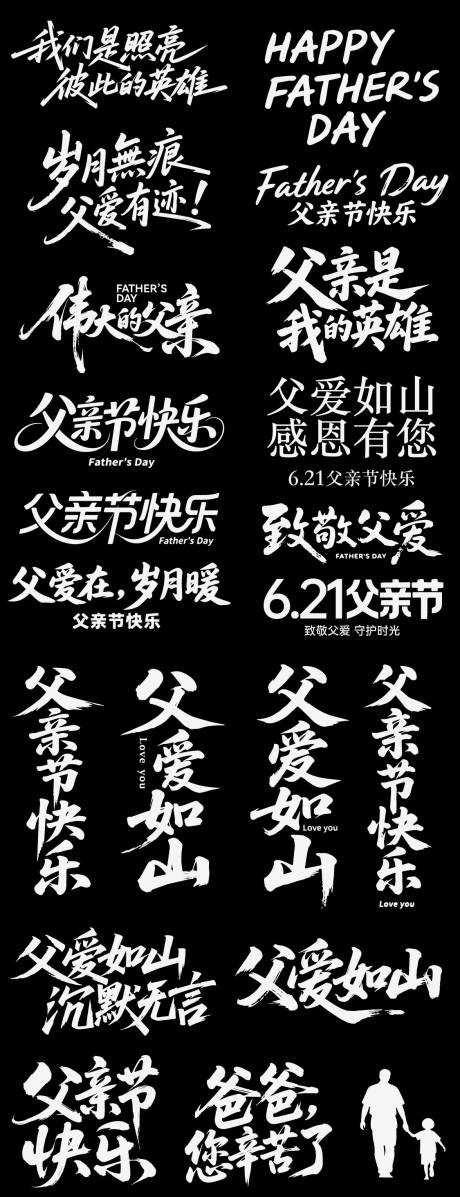 我们是照亮
彼此的英雄
HAPPY
FATHER'S
DAY
岁月無痕
父爱有迹!
Father's Day
父亲节快乐
伟大的父亲
FATHER'S
DAY
父亲是
我的英雄
父亲节快乐
Father's Day
父爱如山
感恩有您
6.21父亲节快乐
父亲节快乐
Father's Day
致敬父爱
FATHER'S DAY
父爱在,岁月暖
父亲节快乐
6.21父亲节
致敬父爱 守护时光
父亲节快乐
父爱如山
Love you
父爱如山
Love you
父亲节快乐
Love you
父爱如山
沉默无言
父爱如山
父亲节
快乐
爸爸,
您辛苦了